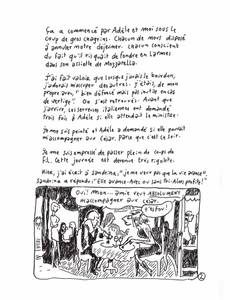 Ça a commencé par Adèle et moi sous le
coup de gros chagrins. Chacun de nous disposé
à annuler notre déjeuner. Chacun conscient
du fait qu'il risquait de fondre en larmes
dans son assiette de Mozzarella.
J'ai fait valoir que lorsque j'avais le bourdon,
j'adorais m'occuper des autres. J'étais, de mon
propre aveu, "bien défoncé mais pas inutile en cas
de vertige". On s'est retrouvés. Avant que
j'arrive, les serveurs italiens ont demandé
trois fois à Adèle si elle attendait le ministre.
Je me suis pointé et Adèle a demandé si elle pouvait
m'accompagner au César. Parce que c'est le César.
Je me suis empressé de passer plein de coups de
fil. Cette journée est devenue très rigolote.
Hier, j'ai écrit à Sandrina: "je ne veux pas que la vie avance".
Sandrina a répondu: "Elle avance. Avec ou sans toi. Alors profite!"
Oui! Mon... amie veut ABSOLUMENT
m'accompagner aux César.
T'es fou!
2